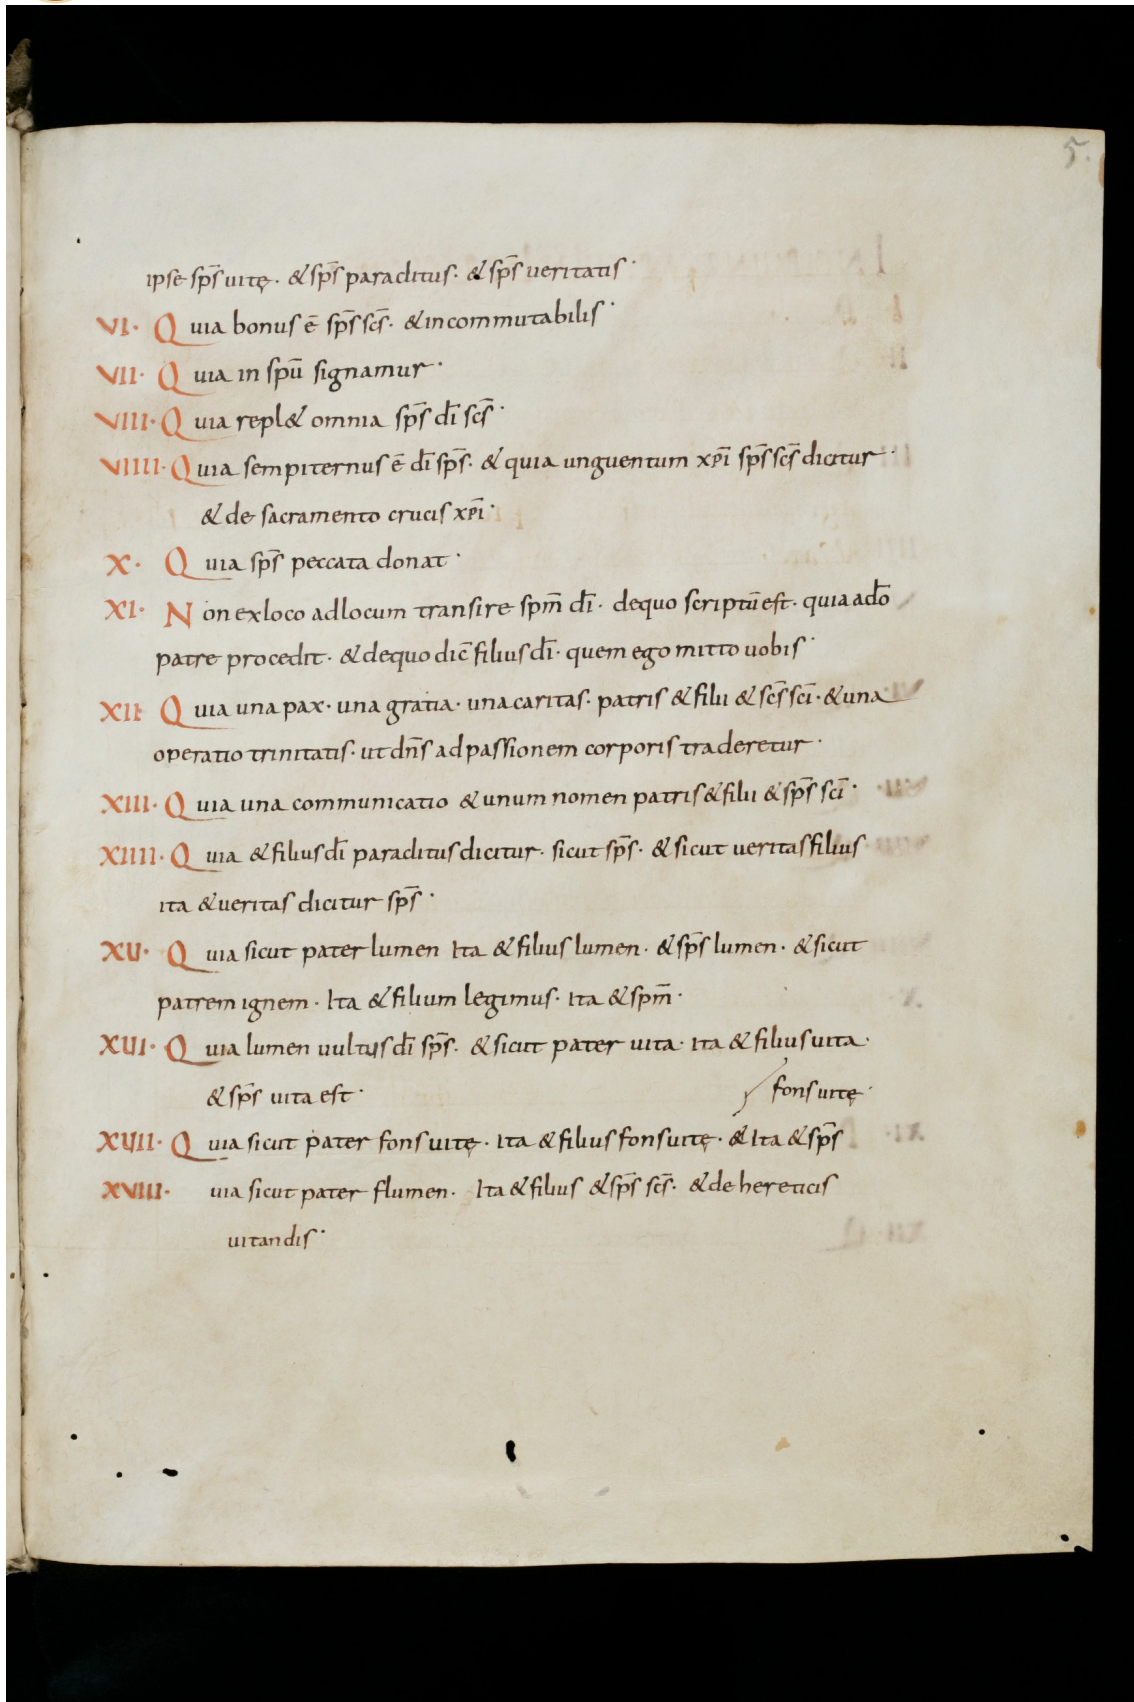 5.
ipse sp̄s uitę · & sp̄s paraclitus · & sp̄s ueritatis ·
VI · Quia bonus ē sp̄s sc̄s · & incommutabilis ·
VII · Quia in spū signamur ·
VIII · Quia repl& omnia sp̄s dī sc̄s ·
VIIII · Quia sempiternus ē dī sp̄s · & quia unguentum xp̄ī sp̄s sc̄s dicitur ·
& de sacramento crucis xp̄ī ·
X · Quia sp̄s peccata donat ·
XI · Non ex loco ad locum transire spm̄ dī · de quo scriptū est · quia a dō
patre procedit · & de quo dic̄ filius dī · quem ego mitto uobis ·
XII · Quia una pax · una gratia · una caritas · patris & filii & sc̄s scī · & una
operatio trinitatis · ut dn̄s ad passionem corporis traderetur ·
XIII · Quia una communicatio & unum nomen patris & filii & sp̄s scī ·
XIIII · Quia & filius dī paraclitus dicitur · sicut sp̄s · & sicut ueritas filius
ita & ueritas dicitur sp̄s ·
XU · Quia sicut pater lumen Ita & filius lumen · & sp̄s lumen · & sicut
patrem ignem · Ita & filium legimus · ita & spm̄ ·
XUI · Quia lumen uultus dī sp̄s · & sicut pater uita · ita & filius uita ·
& sp̄s uita est ·
fons uitę ·
XUII · Quia sicut pater fons uitę · ita & filius fons uitę · & Ita & sp̄s
XVIII · uia sicut pater flumen · Ita & filius & sp̄s sc̄s · & de hereticis
uitandis ·